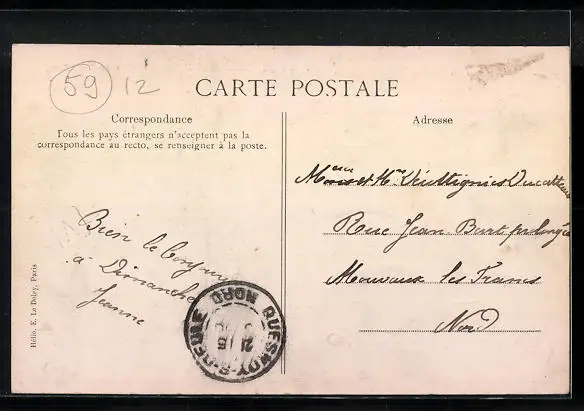 59 12
CARTE POSTALE
Correspondance
Tous les pays étrangers n'acceptent pas la
correspondance au recto, se renseigner à la poste.
Adresse
Bien le bonjour
à Dimanche
Jeanne
et
Rue Jean Bart prolongée
Mouvaux les Francs
Nord
Hélio. E. Le Deley, Paris
QUESNOY-S-DEULE NORD
21